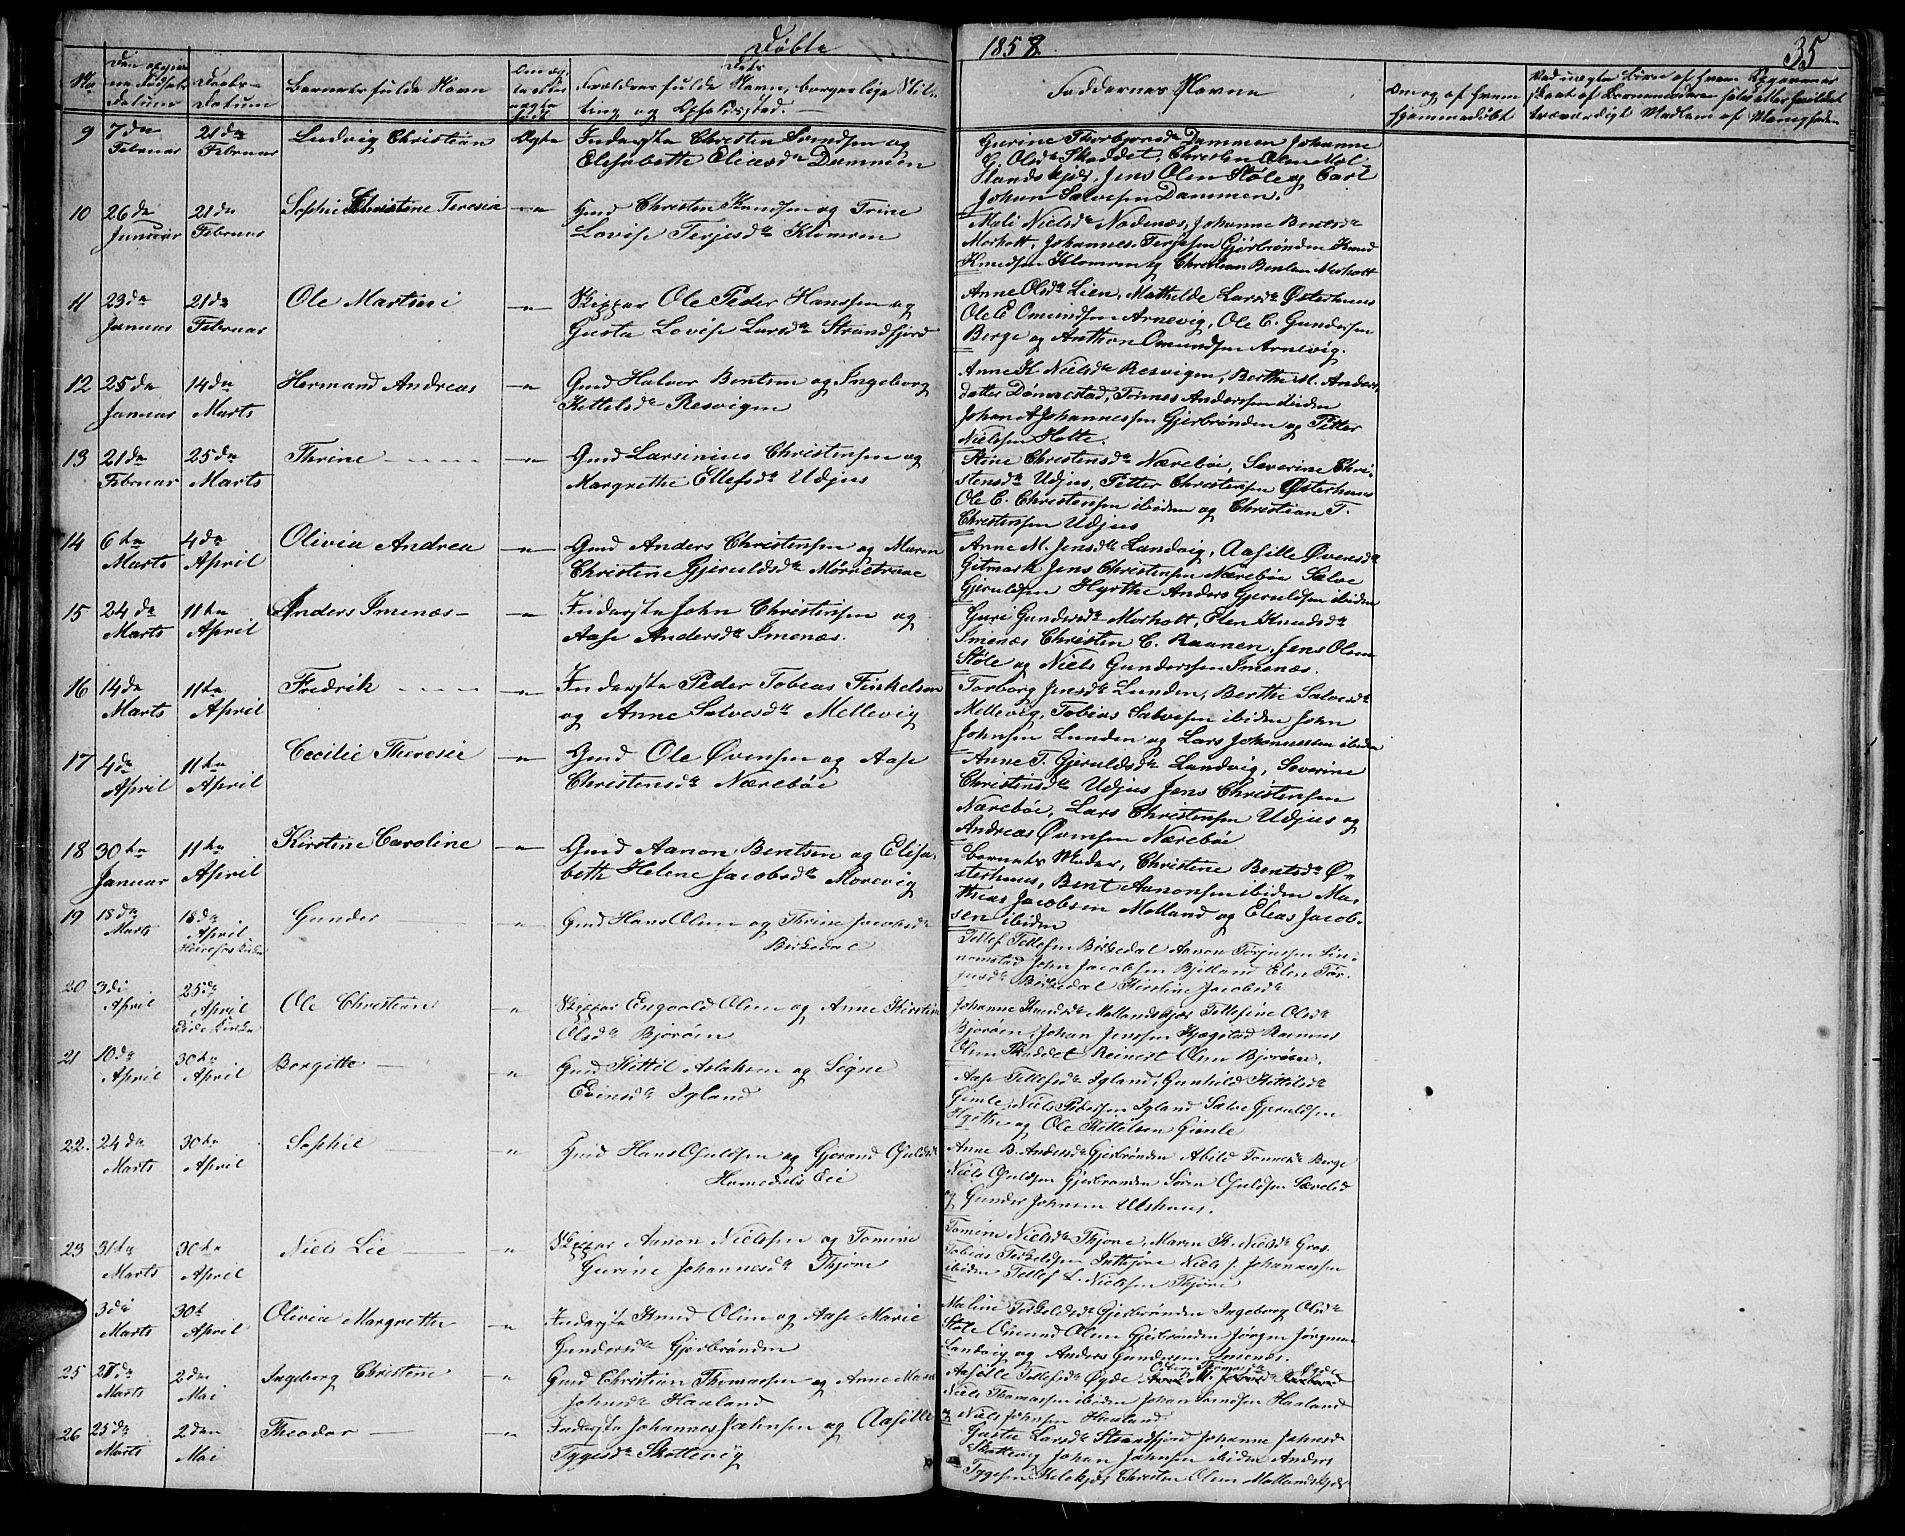 Døbte
1858.
35
No
Døbte-
Datum
Barnets fulde Navn
Forældres fulde Navn, borgerlige Stil-
ling og Opholdssted.
Faddernes Navne
Om og af hvem
hjemmedøbt
9 7de Februar 21de Februar Ludvig Christian Ægte Inderste Christen Svendsen og
Elisabette Eliasd. Dammen
Gurine Thorbjørnsd. Dammen Johanne
G. Olsd. Skaddet, Christen Olsen Mol-
landskjær, Jens Olsen Støle og Carl
Johan Salvesen Dammen.
10 26de Januar 21de Februar Sophie Christine Teresia Gmd Christen Knudsen og Trine
Lovise Terjesd. Klomren
Mali Nielsd. Nodenæs, Johanne Bentsd.
Morholt, Johannes Terjesen Gjerbrønden Knud
Knudsen Klomren og Christian Bentsen Morholt
11 23de Januar 21de Februar Ole Martini Skipper Ole Peder Hanssen og
Gusta Lovise Larsd. Strandfjord
Anne Olsd. Lien, Mathilde Larsd. Østerhuus
Ole E Omundsen Arnevig, Ole C. Gundersen
Berge og Anthon Omundsen Arnevig.
12 25de Januar 14de Marts Hermand Andreas Gmd Halvor Bentsen og Ingeborg
Kittelsd. Resvigen
Anne K Nielsd. Resvigen, Berthe M. Anders-
datter Dømmestad, Tønnes Anderssen ibiden
Johan A Johannessen Gjerbrønden og Petter
Nielssen Holte.
13 21de Februar 25de Marts Thrine Gmd Larsinius Christensen og
Margrethe Ellefsd. Udjus
Stine Christensd. Nærebøe, Severine Chri-
stensd. Udjus, Petter Christensen Østerhuus
Ole C. Christensen ibiden og Christian T.
Christensen Udjus
14 6te Marts 4de April Olivia Andrea Gmd Anders Christensen og Maren
Christine Gjeruldsd.
Anne M. Jensd. Landvig, Aasille Øvensd.
Gitmark Jens Christensen Nærebøe Salve
Gjeruldsen Hyrthe Anders Gjeruldsen ibiden
15 24de Marts 11te April Anders Imenæs Inderste John Christensen og
Aase Andersd. Imenæs.
Guri Gundersd. Morholt, Elen Knudsd.
Imenæs Christen C. Raanen, Jens Olsen
Støle og Niels Gunderssen Imenæs.
16 14de Marts 11te April Fredrik Inderste Peder Tobias Finkelsen
og Anne Salvesd. Mellevig
Torborg Jensd. Lunden, Berthe Salvesd.
Mellevig, Tobias Salvesen ibiden John
Johnsen Lunden og Lars Johannessen ibiden
17 4de April 11te April Cecilie Theresie Gmd Ole Øvensen og Aase
Christensd. Nærebøe
Anne T. Gjeruldsd. Landvig, Severine
Christensd. Udjus Jens Christensen
Nærebøe, Lars Christensen Udjus og
Andreas Øvensen Nærebøe
18 30te Januar 11te April Kirstine Caroline Gmd Aanon Bentsen og Elisa-
beth Helene Jacobsd. Morevig
Barnets Moder, Christine Bentsd. Ø-
sterhuus, Bent Aanonsen ibiden Ma-
thias Jacobsen Molland og Elias Jacob-
sen ibiden
19 18de Marts 18de April Gunder Gmd Hans Olsen og Thrine Jacobsd.
Birkedal
Tellef Tellefsen Birkedal Aanon Torjussen
John Jacobsen Bjelland Elen Tor-
jusd. Birkedal Kirstine Jacobsd.
20 3die April 25de April Ole Christian Skipper Engvald Olsen og Anne Kirstine
Olsd. Bjorøen
Johanne Knudsd. Mollandskjær Tellefine Olsd.
Bjorøen, Johan Jenssen Hægestad Rasmus
Olsen Skaddet Reinert Olsen Bjorøen.
21 10de April 30te April Borgitte Gmd Kittil Aslaksen og Signe
Evensd. Igland
Aase Tellefsd. Igland, Gunhild Kittilsd.
Gimle, Niels Pedersen Igland Salve Gjeruldsen
Hyrthe og Ole Kittilsen Gimle
22. 24de Marts 30te April Sophie Gmd Hans Osuldsen og Gjorand Osuldsd.
Homedals Eie
Anne B. Andersd. Gjerbrønden Abild Tønnesd. Berge
Niels Osuldsen Gjerbrønden Søren Osuldsen Sævelid
og Gunder Johnsen Ulshuus.
23 31te Marts 30te April Niels Lie Skipper Aanon Nielsen og Tomine
Gurine Johannesd. Thjøre
Tomine Nielsd. Thjøre, Maren K. Nielsd. Gros
Tobias Terkelsen Indtjøre Niels J. Johannessen
ibiden Tellef L. Nielssen Thjøre
3die Marts 30te April Olivia Margrethe Inderste Knud Olsen og Aase Marie
Gundersd. Gjerbrønden
Maline Terkeldsd. Gjerbrønden Ingeborg Olsd.
Støle Omund Olsen Gjerbrønden Jørgen Jørgensen
Landvig og Anders Gundersen Imenæs.
25 27de Marts 2den Mai Ingeborg Christine Gmd Christian Thomassen og Anne Marie
Johnsd. Haaland
Aasille Tellefsd. Øyde
Niels Thomassen ibiden Johan Svendsen Haaland
og Niels Johnsen Haaland
26 25de Marts 2den Mai Theodor Inderste Johannes Johnsen og Aasille
Tygesd. Skottevig
Gustie Larsd. Strandfjord Johanne Johnsd.
Skottevig Johan Johnsen ibiden Anders
Tygesen Kilekjær Christen Olsen Mollandskjær